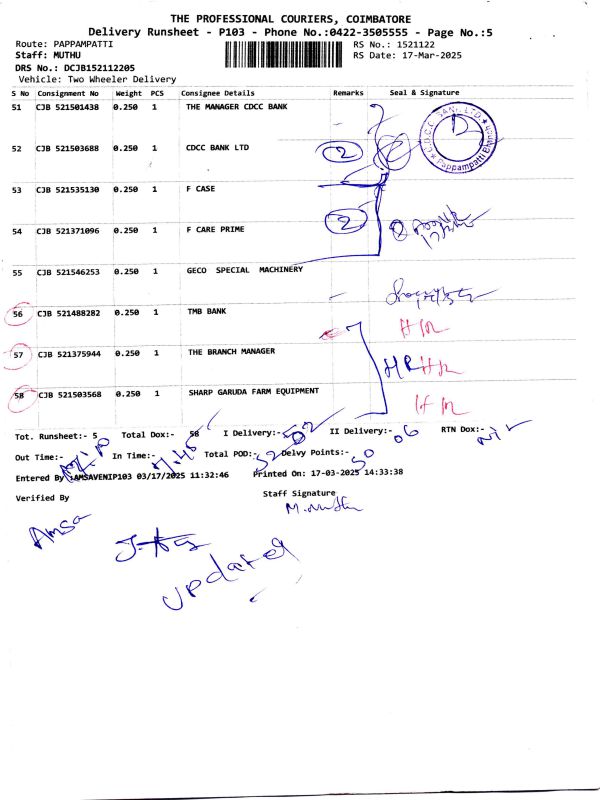 THE PROFESSIONAL COURIERS, COIMBATORE
Delivery Runsheet - P103 - Phone No.:0422-3505555 - Page No.:5
Route: PAPPAMPATTI RS No.: 1521122
Staff: MUTHU RS Date: 17-Mar-2025
DRS No.: DCJB152112205
Vehicle: Two Wheeler Delivery
S No Consignment No Weight PCS Consignee Details Remarks Seal & Signature
51 CJB 521501438 0.250 1 THE MANAGER CDCC BANK
52 CJB 521503688 0.250 1 CDCC BANK LTD 2
53 CJB 521535130 0.250 1 F CASE
54 CJB 521371096 0.250 1 F CARE PRIME 2
55 CJB 521546253 0.250 1 GECO SPECIAL MACHINERY
56 CJB 521488282 0.250 1 TMB BANK
57 CJB 521375944 0.250 1 THE BRANCH MANAGER
58 CJB 521503568 0.250 1 SHARP GARUDA FARM EQUIPMENT
Tot. Runsheet:- 5 Total Dox:- 58 I Delivery:- 52 II Delivery:- 06 RTN Dox:- Nil
Out Time:- In Time:- 7.45 Total POD:- 52 Delvy Points:- 50
Entered By :AMSAVENIP103 03/17/2025 11:32:46 Printed On: 17-03-2025 14:33:38
Verified By Staff Signature
Amsa
updated